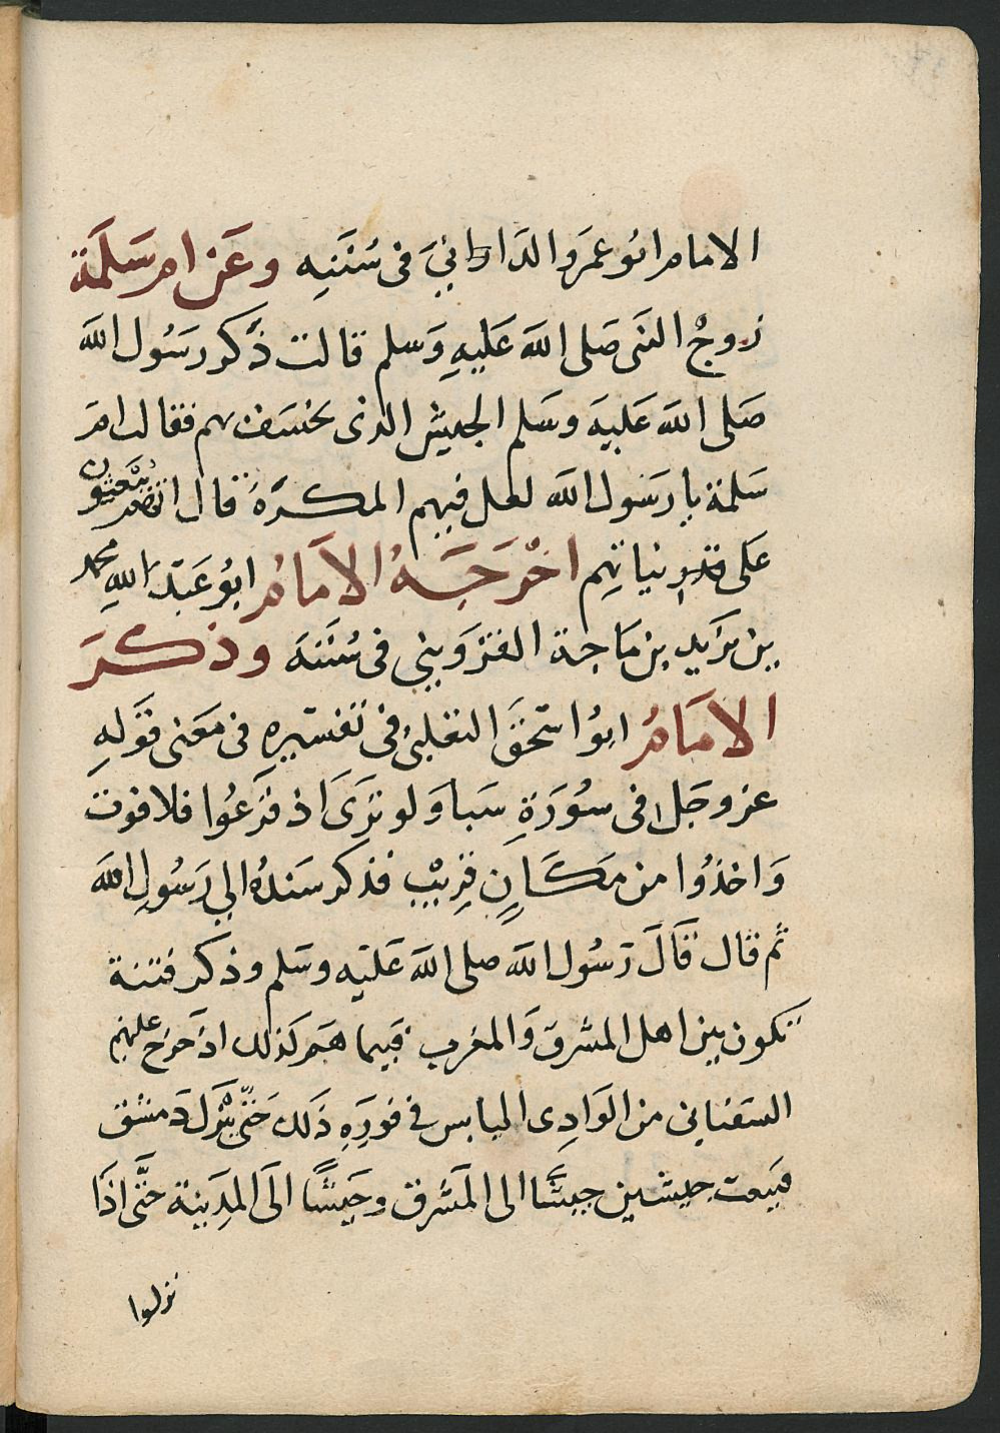 الامام ابو عمرو الدانيّ في سُنَنِه وعَن ام سَلَمَة
زوجُ النبي صَلى اللّه عَليهِ وَسلم قالت ذَكَر رسَول اللّه
صَلى اللّه عَليهَ وسَلم الجيش الذى يخسَف بهم فقالت ام
سَلمة يا رسَول اللّه لعل فيهم المكرَهُ قال انهم يُبْعَثون
عَلى نياتهِم اخْرَجَهُ الامَامُ ابوُ عَبْد اللهِ محمد
بن يَزيد بن مَاجة القزويني في سُننَه وذكرَ
الامَامُ ابوُ اسحَقَ الثعلبىُ في تفسيرهِ في مَعنى قوَلهِ
عز وجَل فى سوُرَةِ سَبا وَلو ترَىَ اذ فزَعُوا فلا فوت
وَاخذُوا من مَكَانٍ قرِيبْ فذكر سَندهُ الي رَسُولِ اللّه
ثم قال قاَلَ رَسُول اللّه صلى اللّه عَليَه وسَلم وذكر فتنة
تكون بين اهل المشرق وَالمغرب فبَيما هَم كذلك اذ خرَج عليهم
السَفياني من الوَادِى اليابس في فورِهِ ذَلك حَتّىَ يَنْزل دَمشق
فيَبعث جيشين جيشًا الى المَشرق وجَيشًا الَى المدِينَة حتَّى اذَا
نزلوا